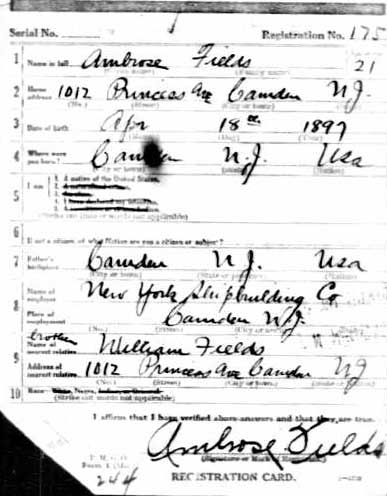 Serial No. Registration No. 175
1 Name in full Ambrose Fields 21
2 Home address 1012 Princess Ave Camden N.J.
(No.) (Street) (City or town)
3 Date of birth Apr 18th 1897
4 Where were you born? Camden N.J. Usa
(City or town) (Nation)
5 I am 1. A native of the United States.
(Strike out lines or words not applicable)
6 If not a citizen of what Nation are you a citizen or subject?
7 Father's birthplace Camden N.J. Usa
(City or town)
8 Name of employer New York Shipbuilding Co
Place of employment Camden N.J.
(No.) (Street) (City or town)
brother
9 Name of nearest relative William Fields
Address of nearest relative 1012 Princess Ave Camden NJ
(No.) (Street) (City or town)
10 Race White, Negro, Indian, or Oriental
(Strike out words not applicable)
I affirm that I have verified above answers and that they are true.
Ambrose Fields
(Signature or Mark of Registrant)
P. M. G. O.
Form 1
244 REGISTRATION CARD.